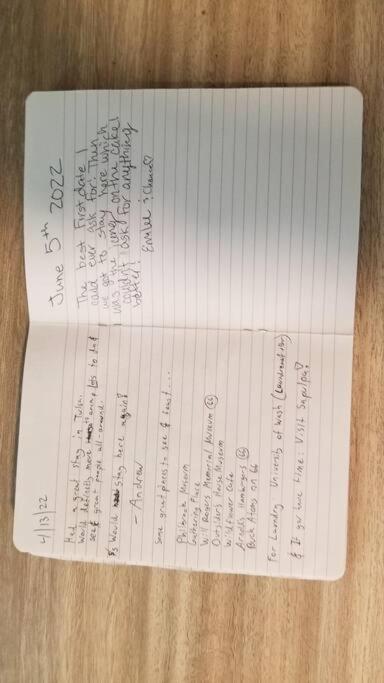 4/13/22
Had a great stay in Tulsa.
Would definitely more Lots to do &
see & great people all-around.
Would stay here again!
- Andrew
Some great places to see & feast...
Philbrook Museum
Gathering Place
Will Rogers Memorial Museum (66)
Outsiders House Museum
Wildflower Cafe
Arnold's Hamburgers (66)
Buck Atoms on 66
For Laundry University of Wash (Laundromat)
& If you have time: Visit Sapulpa!
June 5th 2022
The best first date I
could ever ask for! Then
we got to stay here which
was the icing on the cake!
couldn't ask for anything
better!
Emilee & Chance